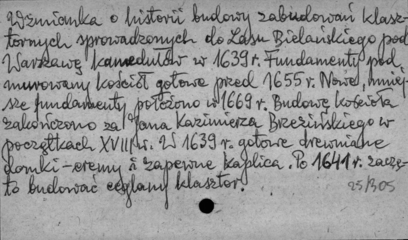 Wzmianka o historii budowy zabudowań klasz-
tornych sprowadzonych do Lasu Bielańskiego pod
Warszawę kamedułów w 1639 r. Fundamenty pod
murowany kościół gotowe przed 1655 r. Nowe, mniej-
sze fundamenty położono w 1669 r. Budowę kościoła
zakończono za Jana Kazimierza Brzezińskiego w
początkach XVIII w. W 1639 r. gotowe drewniane
domki-eremy i zapewne kaplica. Po 1641 r. zaczę-
to budować ceglany klasztor.
25/305